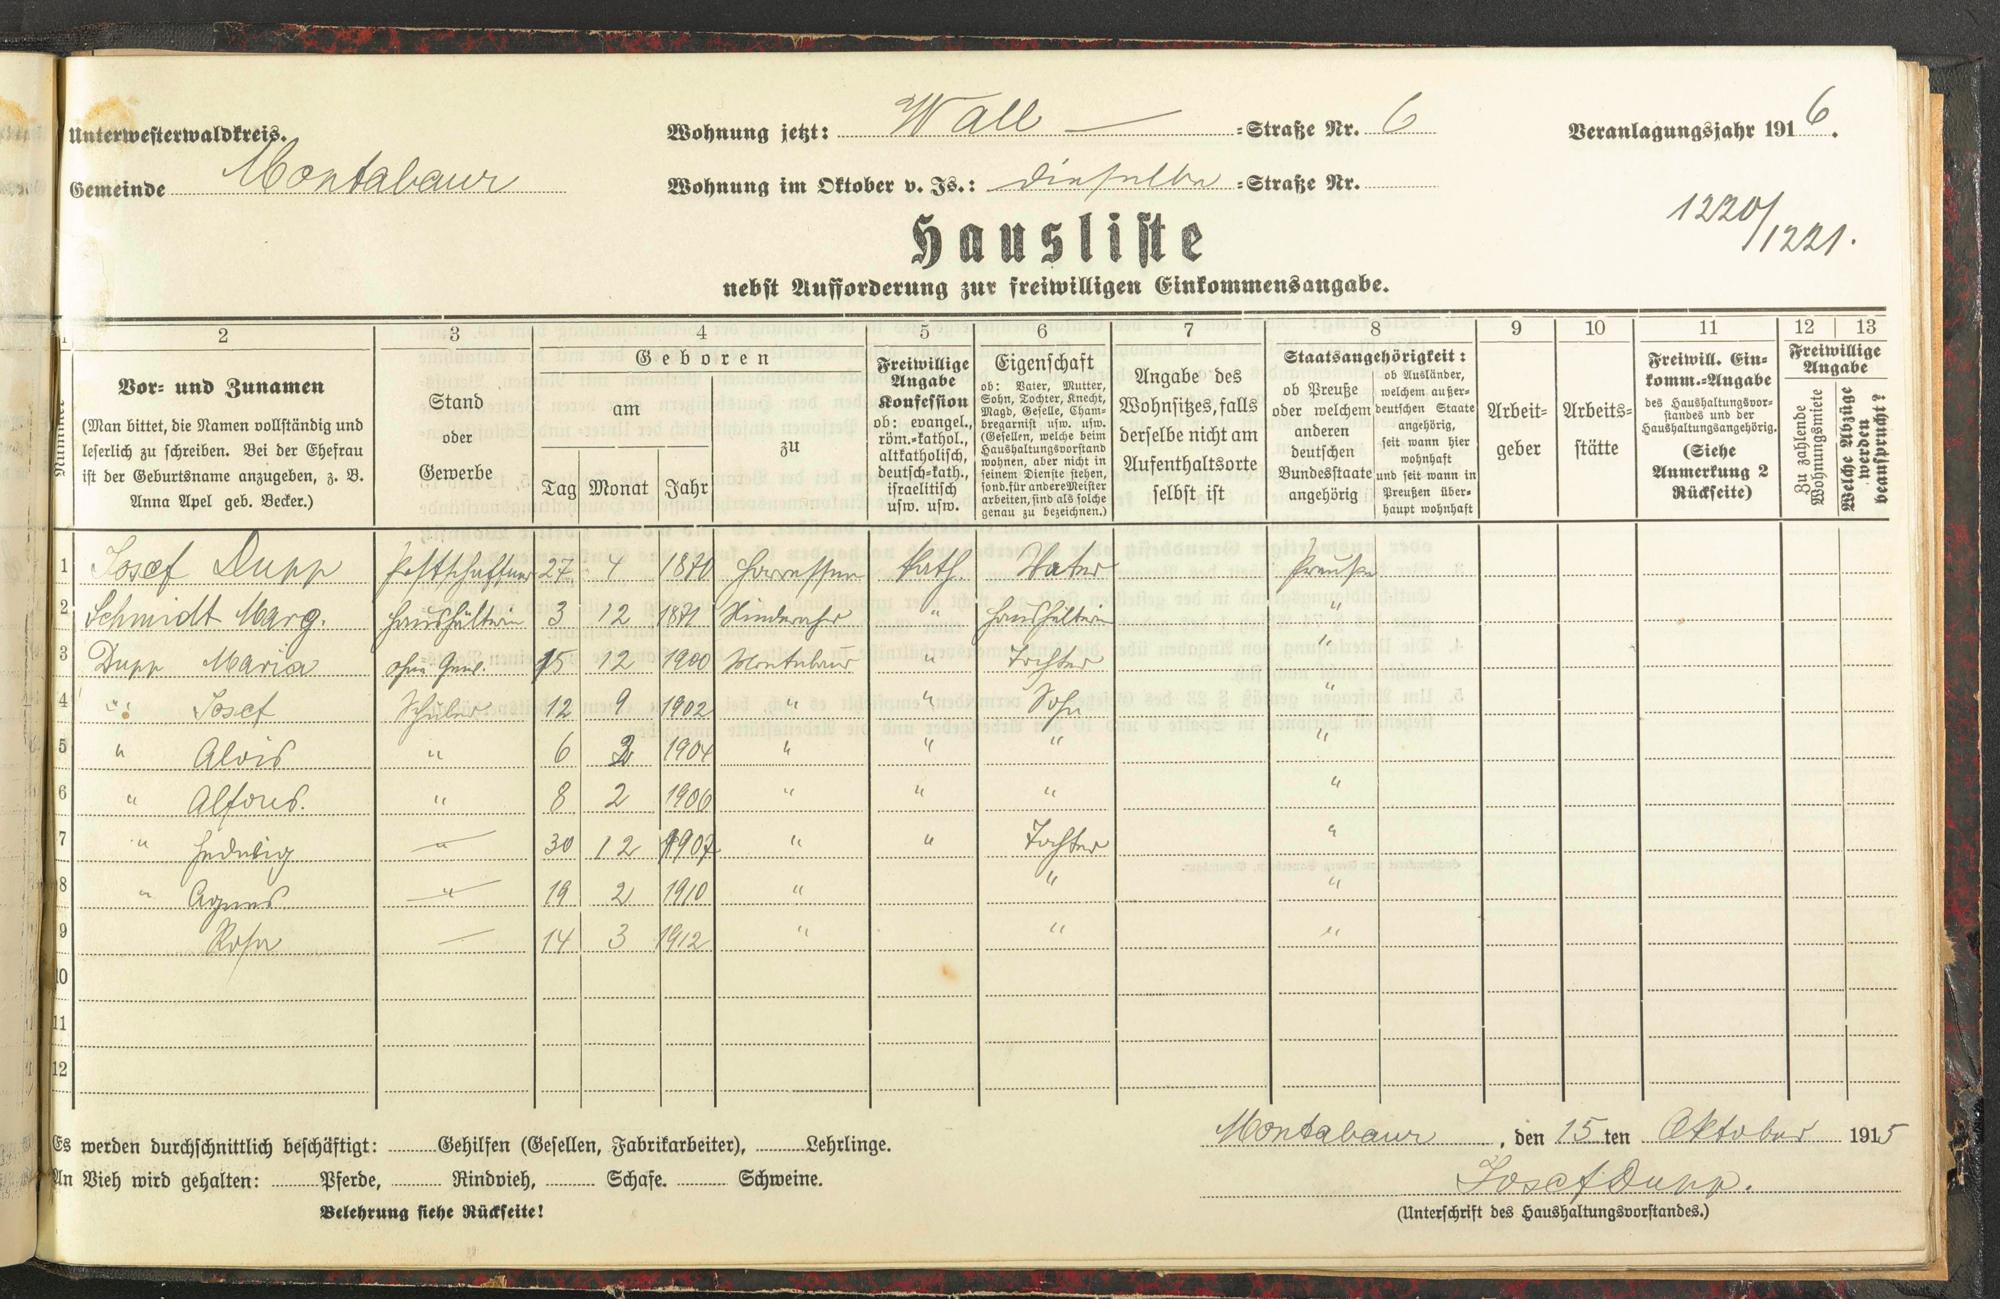 Unterwesterwaldkreis. Wohnung jetzt: Wall — =Straße Nr. 6 Veranlagungsjahr 1916.
Gemeinde Montabaur Wohnung im Oktober v. Js.: dieselbe =Straße Nr.
1220/1221.
Hausliste
nebst Aufforderung zur freiwilligen Einkommensangabe.
1 2 3 4 5 6 7 8 9 10 11 12 13
Nummer
Vor- und Zunamen
(Man bittet, die Namen vollständig und
leserlich zu schreiben. Bei der Ehefrau
ist der Geburtsname anzugeben, z. B.
Anna Apel geb. Becker.)
Stand
oder
Gewerbe
Geboren
am
Tag Monat Jahr
zu
Freiwillige
Angabe
Konfession
ob: evangel.,
röm.-kathol.,
altkatholisch,
deutsch-kath.,
israelitisch
usw. usw.
Eigenschaft
ob: Vater, Mutter,
Sohn, Tochter, Knecht,
Magd, Geselle, Cham-
bregarnist usw. usw.
(Gesellen, welche beim
Haushaltungsvorstand
wohnen, aber nicht in
seinem Dienste stehen,
sond. für andere Meister
arbeiten, sind als solche
genau zu bezeichnen.)
Angabe des
Wohnsitzes, falls
derselbe nicht am
Aufenthaltsorte
selbst ist
Staatsangehörigkeit:
ob Preuße
oder welchem
anderen
deutschen
Bundesstaate
angehörig
ob Ausländer,
welchem außer-
deutschen Staate
angehörig,
seit wann hier
wohnhaft
und seit wann in
Preußen über-
haupt wohnhaft
Arbeit-
geber
Arbeits-
stätte
Freiwill. Ein-
komm.-Angabe
des Haushaltungsvor-
standes und der
Haushaltungsangehörig.
(Siehe
Anmerkung 2
Rückseite)
Freiwillige
Angabe
Zu zahlende
Wohnungsmiete
Welche Abzüge
werden
beansprucht?
1 Josef Dupp Postschaffner 27 4 1870 Horressen kath. Vater Preuße
2 Schmidt Marg. Haushälterin 3 12 1871 " Haushälterin "
3 Dupp Maria ohne Gew. 15 12 1900 Montabaur " Tochter "
4 " Josef Schüler 12 9 1902 " " Sohn "
5 " Alois " 6 2 1904 " " " "
6 " Alfons. " 8 2 1906 " " " "
7 " Hedwig " 30 12 1907 " " Tochter "
8 " Agnes " 19 2 1910 " " "
9 Rosa — 14 3 1912 " " "
10
11
12
Es werden durchschnittlich beschäftigt: Gehilfen (Gesellen, Fabrikarbeiter), Lehrlinge.
An Vieh wird gehalten: Pferde, Rindvieh, Schafe. Schweine.
Belehrung siehe Rückseite!
Montabaur, den 15ten Oktober 1915
Josef Dupp.
(Unterschrift des Haushaltungsvorstandes.)